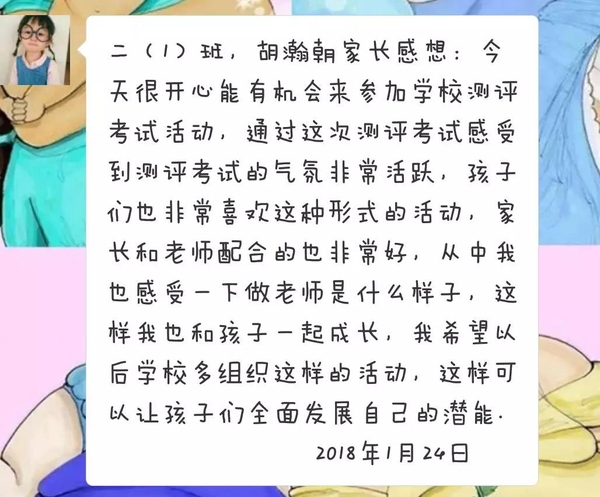 二（1）班，胡瀚朝家长感想：今
天很开心能有机会来参加学校测评
考试活动，通过这次测评考试感受
到测评考试的气氛非常活跃，孩子
们也非常喜欢这种形式的活动，家
长和老师配合的也非常好，从中我
也感受一下做老师是什么样子，这
样我也和孩子一起成长，我希望以
后学校多组织这样的活动，这样可
以让孩子们全面发展自己的潜能.
2018年1月24日